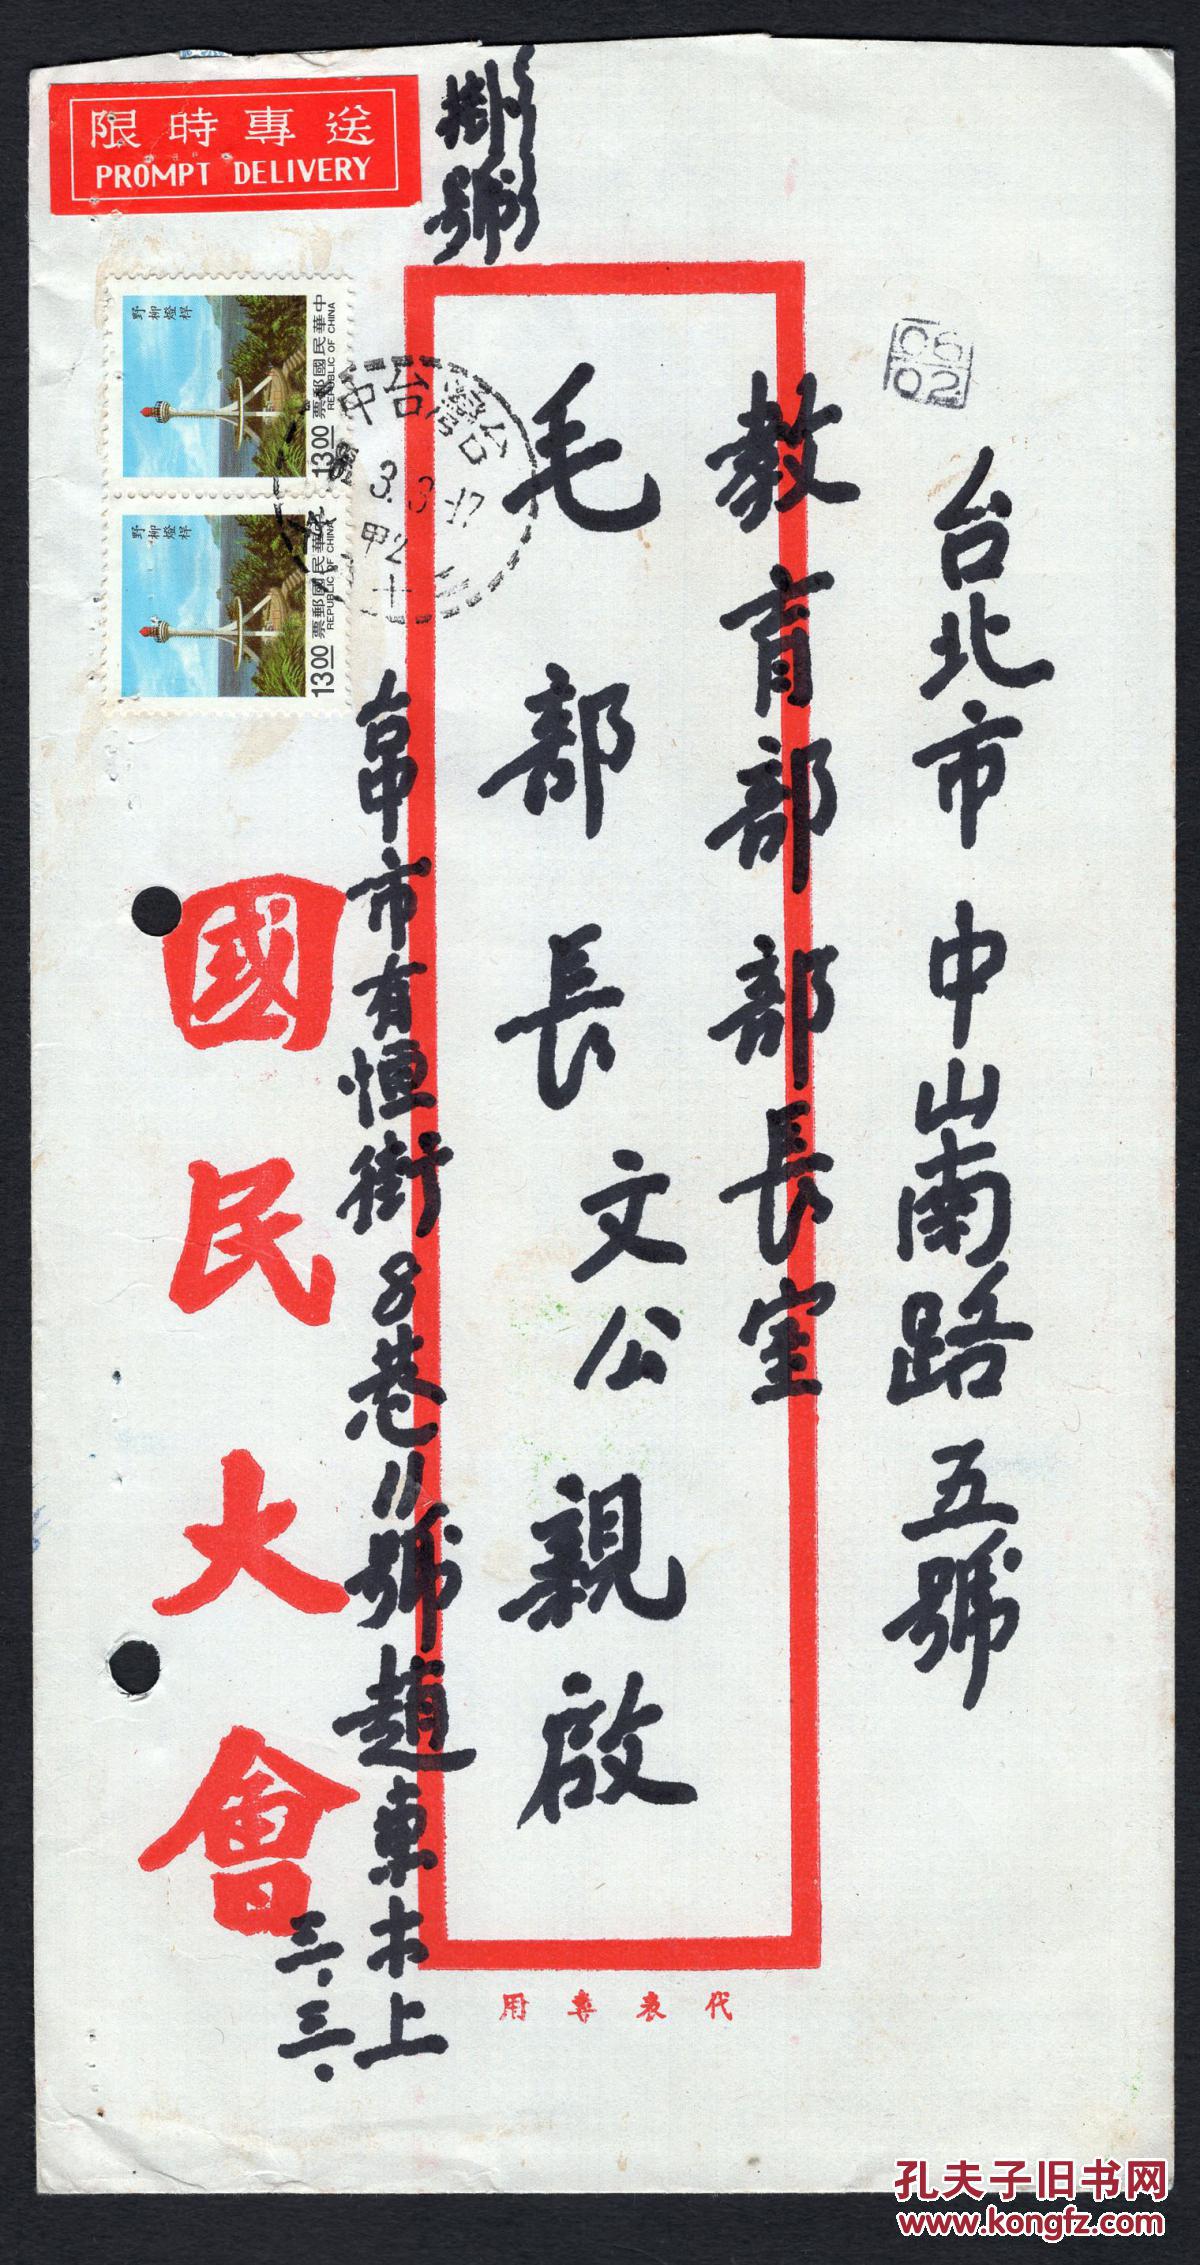 限時專送
PROMPT DELIVERY
掛號
野柳燈桿
中華民國郵票
REPUBLIC OF CHINA
13.00
野柳燈桿
中華民國郵票
REPUBLIC OF CHINA
13.00
台灣
台中
甲2
C6
02
台北市中山南路五號
教育部部長室
毛部長文公親啟
台中市有恒街8巷11號趙東木上
三.三.
國民大會
代表專用
孔夫子旧书网
www.kongfz.com